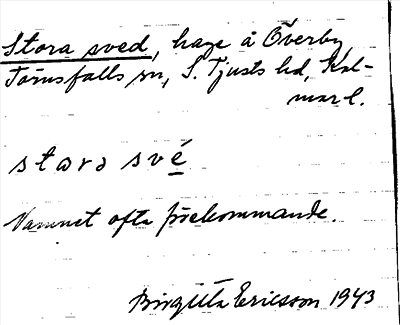 Stora sved, hage å Överby,
Törnsfalls sn, S. Tjusts hd, Kal-
mar l.
stora své
Namnet ofta förekommande.
Birgitta Ericsson 1943